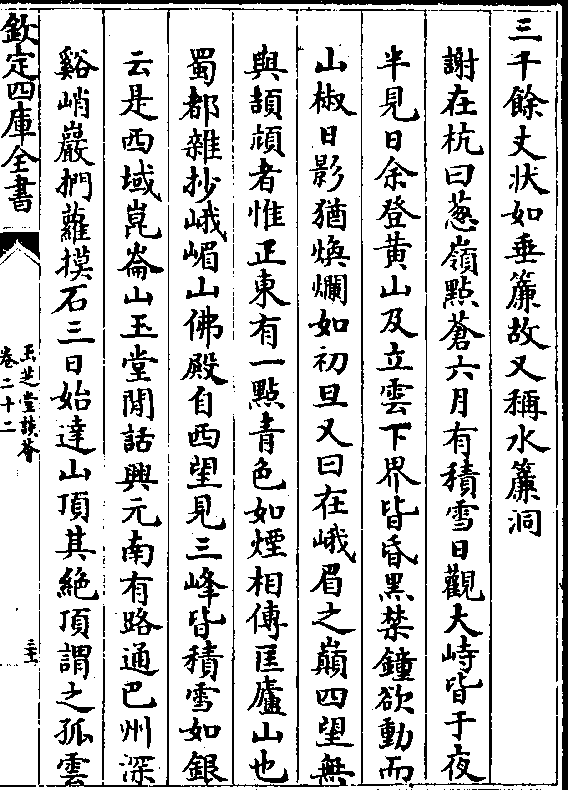 三千餘丈狀如垂簾故又稱水簾洞
謝在杭曰葱嶺點蒼六月有積雪日觀大峙皆于夜
半見日余登黃山及立雲下界皆昏黑禁鐘欲動而
山椒日影猶煥爛如初旦又曰在峨眉之巔四望無
與頡頏者惟正東有一點青色如煙相傳匡廬山也
蜀都雜抄峨嵋山佛殿自西望見三峰皆積雪如銀
云是西域崑崙山玉堂閒話興元南有路通巴州深
谿峭巖捫蘿摸石三日始達山頂其絶頂謂之孤雲
欽定四庫全書
玉芝堂談薈
卷二十二